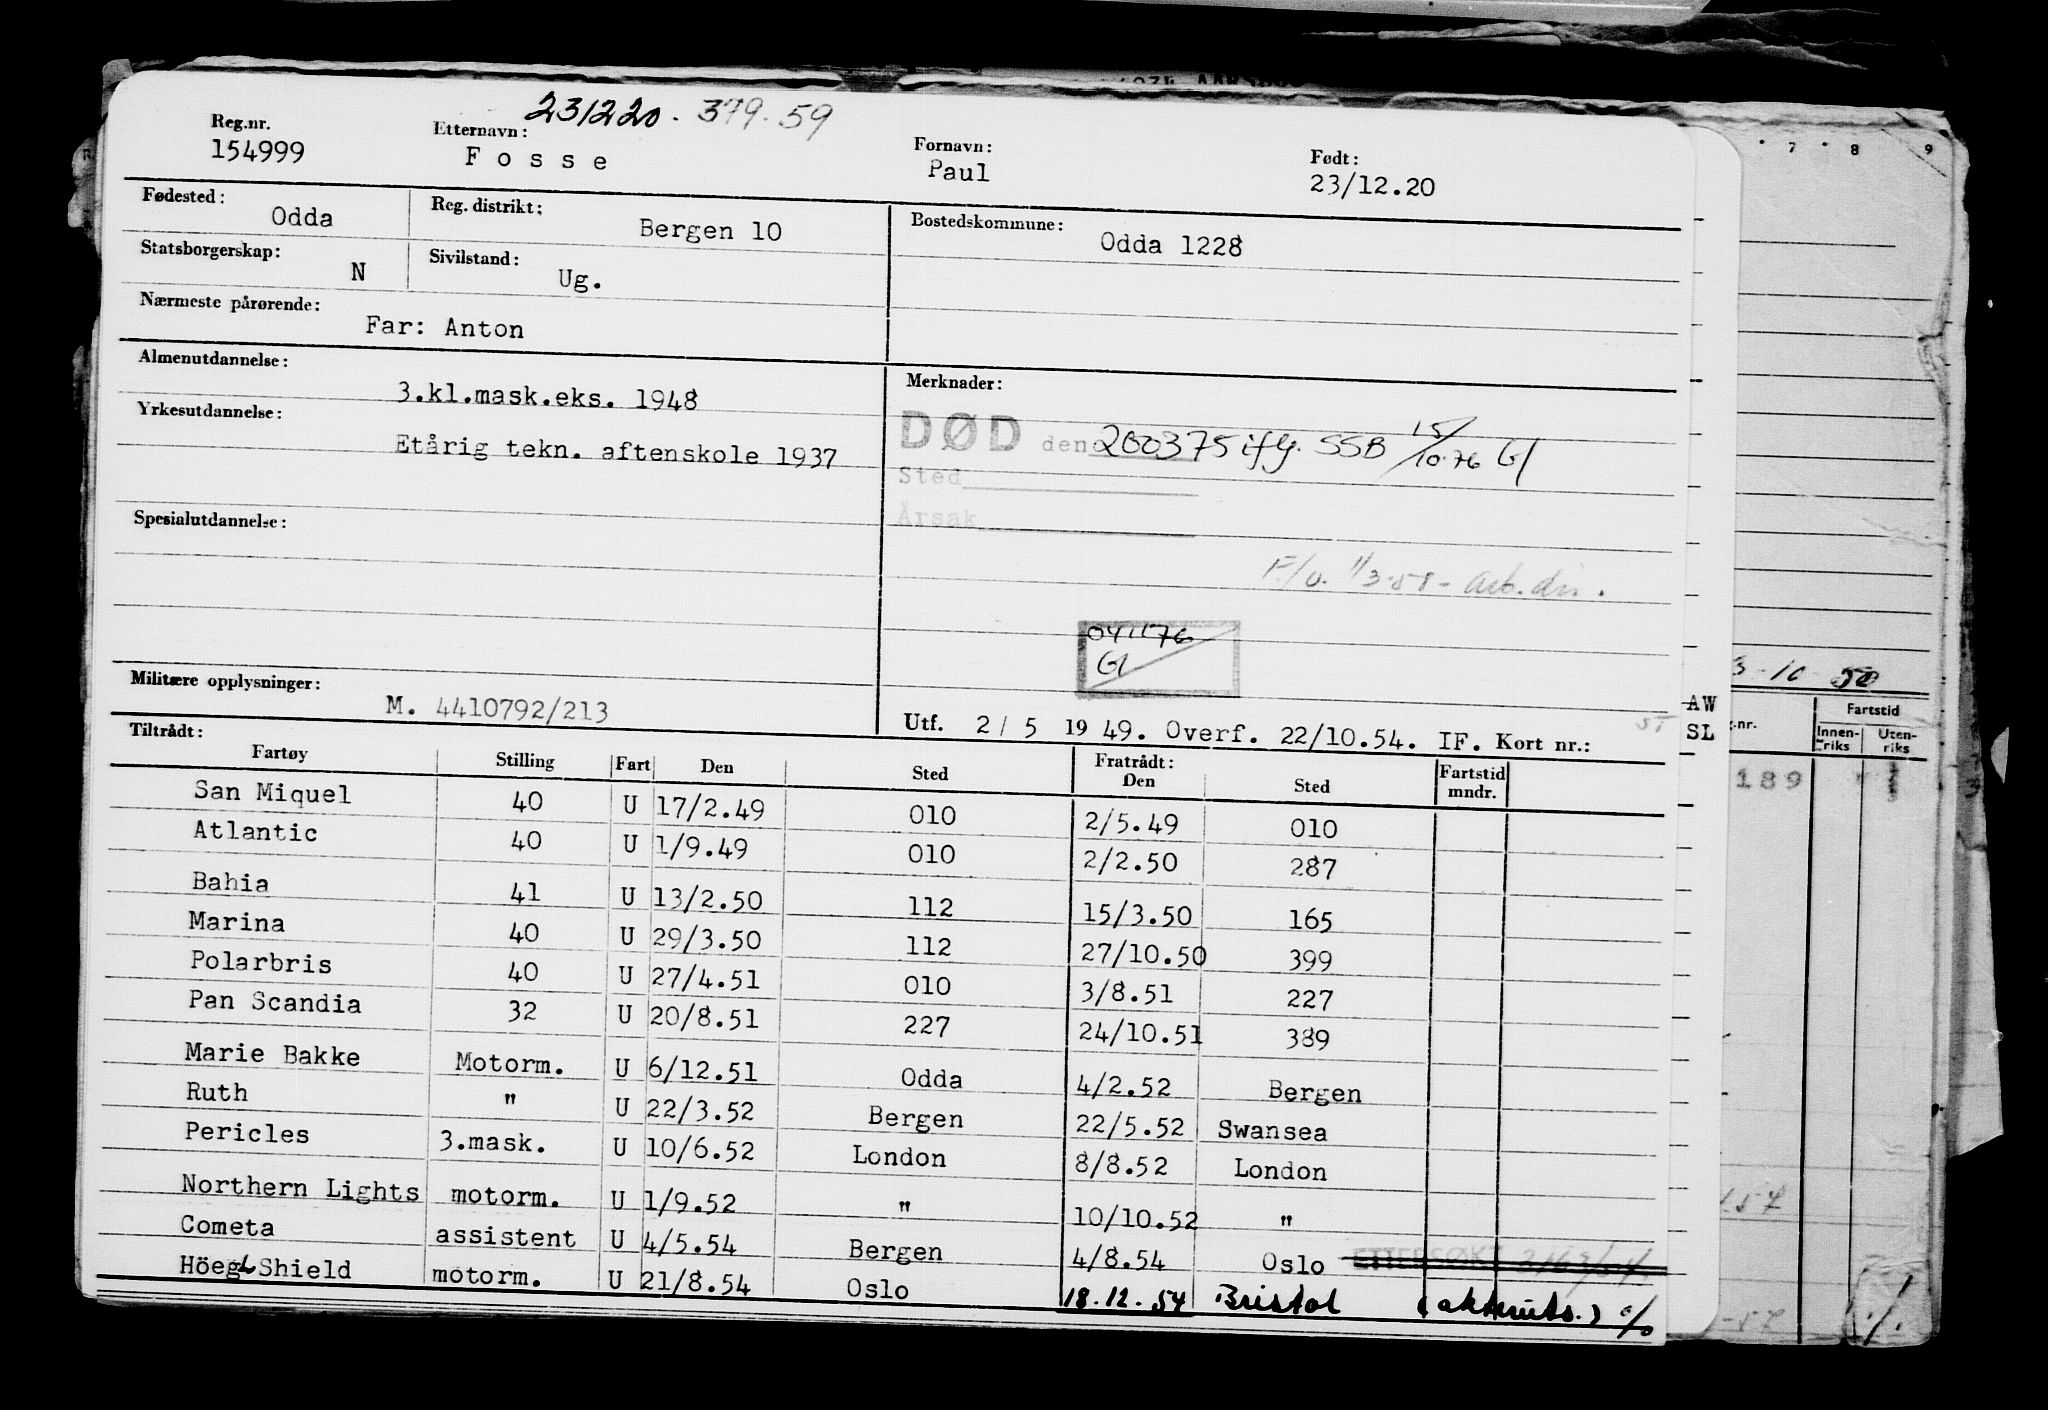 231220. 379.59
Reg.nr. Etternavn: Fornavn: Født:
154999 Fosse Paul 23/12.20
Fødested: Odda Reg. distrikt: Bergen 10 Bostedskommune: Odda 1228
Statsborgerskap: N Sivilstand: Ug.
Nærmeste pårørende: Far: Anton
Almenutdannelse: 3.kl.mask.eks. 1948 Merknader:
Yrkesutdannelse: Etårig tekn. aftenskole 1937 DØD den 200375 ifg. SSB 15/10-76 Gl
Sted
Årsak
Spesialutdannelse:
F/o. 11/3-58 - arb.dir.
041176
Gl
Militære opplysninger: M. 4410792/213
Utf. 2 / 5 19 49. Overf. 22/10.54. IF. Kort nr.:
Tiltrådt: Fratrådt:
Fartøy Stilling Fart Den Sted Den Sted Fartstid mndr.
San Miquel 40 U 17/2.49 010 2/5.49 010
Atlantic 40 U 1/9.49 010 2/2.50 287
Bahia 41 U 13/2.50 112 15/3.50 165
Marina 40 U 29/3.50 112 27/10.50 399
Polarbris 40 U 27/4.51 010 3/8.51 227
Pan Scandia 32 U 20/8.51 227 24/10.51 389
Marie Bakke Motorm. U 6/12.51 Odda 4/2.52 Bergen
Ruth " U 22/3.52 Bergen 22/5.52 Swansea
Pericles 3.mask. U 10/6.52 London 8/8.52 London
Northern Lights motorm. U 1/9.52 " 10/10.52 "
Cometa assistent U 4/5.54 Bergen 4/8.54 Oslo ETTERSØKT
Höegh Shield motorm. U 21/8.54 Oslo 18.12.54 Bristol
7 8 9
3-10 50
AW
SL
Fartstid
Innen-riks Uten-riks
189